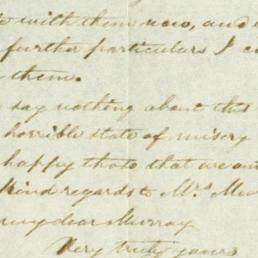 with them now, and
further particulars I
them.
say nothing about this
horrible state of misery
happy thats that are
Kind regards to Mrs Mu
my dear Murray
Very truly yours